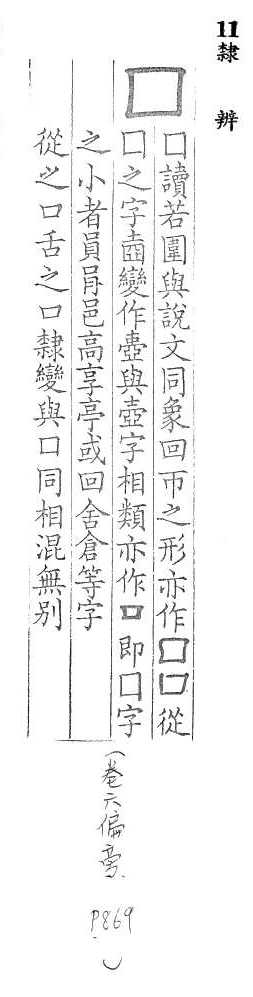 11隸辨
囗
囗讀若圍與說文同象回帀之形亦作囗囗從
囗之字𡇌變作壺與壺字相類亦作囗即囗字
之小者員肙邑高享亭或回舍倉等字
從之口舌之口隸變與口同相混無別
(卷六偏旁、P869)